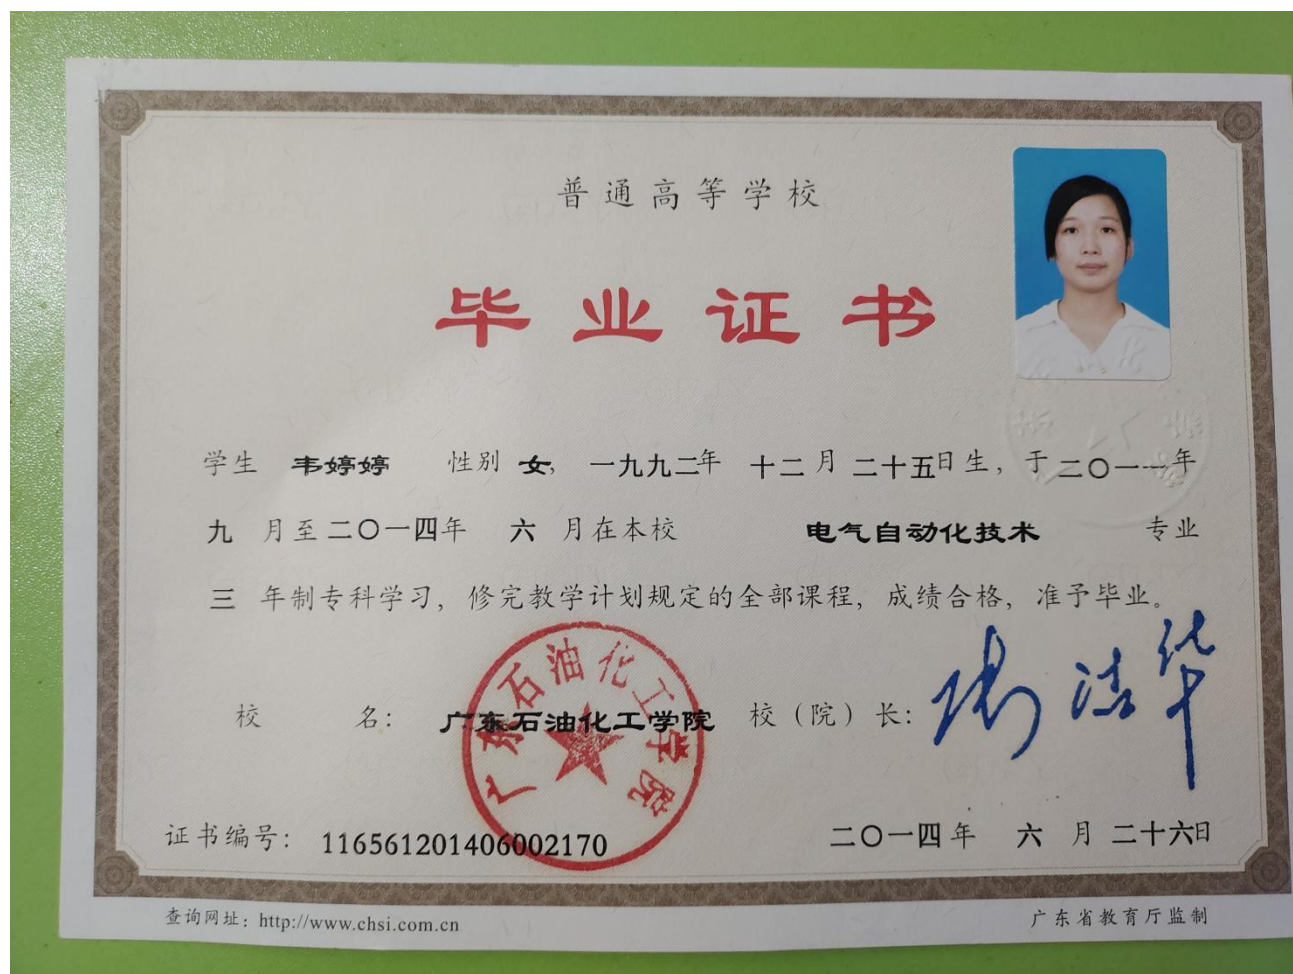 普通高等学校
毕业证书
学生 韦婷婷 性别 女, 一九九二年 十二月二十五日生, 于二〇一一年
九 月至二〇一四年 六 月在本校 电气自动化技术 专业
三 年制专科学习, 修完教学计划规定的全部课程, 成绩合格, 准予毕业。
广东石油化工学院
校 名: 广东石油化工学院 校(院)长:
证书编号: 116561201406002170 二〇一四年 六 月二十六日
查询网址: http://www.chsi.com.cn 广东省教育厅监制